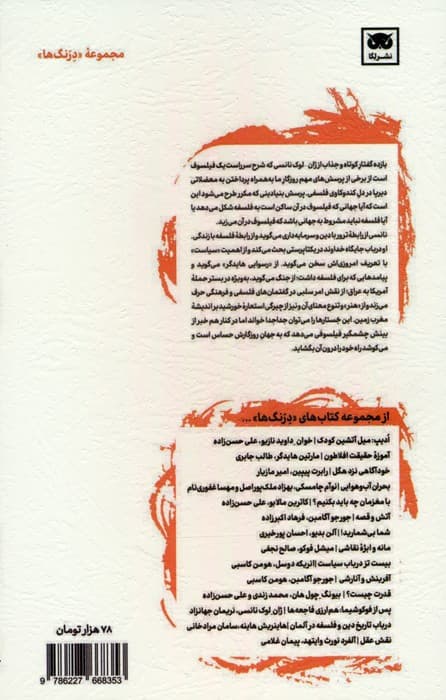 نشر لگا
مجموعهٔ «دِرَنگ‌ها»
یازده گفتار کوتاه و جذاب از ژان ـ لوک نانسی که شرح سرراست یک فیلسوف
است از برخی از پرسش‌های مهم روزگار ما به‌همراه پرداختن به معضلاتی
دیرپا در دل کندوکاوی فلسفی. پرسش بنیادینی که مکرر طرح می‌شود این
است که آیا جهانی که فیلسوف در آن ساکن است به فلسفه شکل می‌دهد یا
آیا فلسفه نباید مشروط به جهانی باشد که فیلسوف در آن می‌زید.
نانسی از رابطهٔ ترور با دین و سرمایه‌داری می‌گوید و از رابطهٔ فلسفه با زندگی.
او درباب جایگاه خداوند در یکتاپرستی بحث می‌کند و از اهمیت «سیاست»
با تعریف امروزی‌اش سخن می‌گوید. از «رسوایی هایدگر» می‌گوید و
پیامدهایی که برای فلسفه داشت؛ از جنگ می‌گوید، به‌ویژه در بستر حملهٔ
آمریکا به عراق؛ از نقش امر سلبی در گفتمان‌های فلسفی و فرهنگی حرف
می‌زند و از «هنر» و تنوع معنای آن و نیز از چیرگی استعارهٔ خورشید بر اندیشهٔ
مغرب زمین. این جستارها را می‌توان جداجدا خواند اما در کنار هم خبر از
بینش چشمگیر فیلسوفی می‌دهد که به جهان روزگارش حساس است و
می‌کوشد راه خود را درون آن بگشاید.
از مجموعه کتاب‌های «دِرَنگ‌ها» ...
اُدیپ؛ میل آتشین کودک | خوان ـ داوید نازیو، علی حسن‌زاده
آموزهٔ حقیقت افلاطون | مارتین هایدگر، طالب جابری
خودآگاهی نزد هگل | رابرت پیپین، امیر مازیار
بحران آب‌وهوایی | نوآم چامسکی، بهزاد ملک‌پور اصل و مهسا غفوری‌نام
با مغزمان چه باید بکنیم؟ | کاترین مالابو، علی حسن‌زاده
آتش و قصه | جورجو آگامبن، فرهاد اکبرزاده
شما بی‌شمارید! | آلن بدیو، احسان پورخیری
مانه و ابژهٔ نقاشی | میشل فوکو، صالح نجفی
بیست تز درباب سیاست | انریکه دوسل، هومن کاسبی
آفرینش و آنارشی | جورجو آگامبن، هومن کاسبی
قدرت چیست؟ | بیونگ چول هان، محمد زندی و علی حسن‌زاده
پس از فوکوشیما: هم‌ارزی فاجعه‌ها | ژان لوک نانسی، نریمان جهانزاد
درباب تاریخ دین و فلسفه در آلمان | هاینریش هاینه، سامان مرادخانی
نقش عقل | آلفرد نورث وایتهد، پیمان غلامی
۷۸ هزار تومان
9 786227 668353